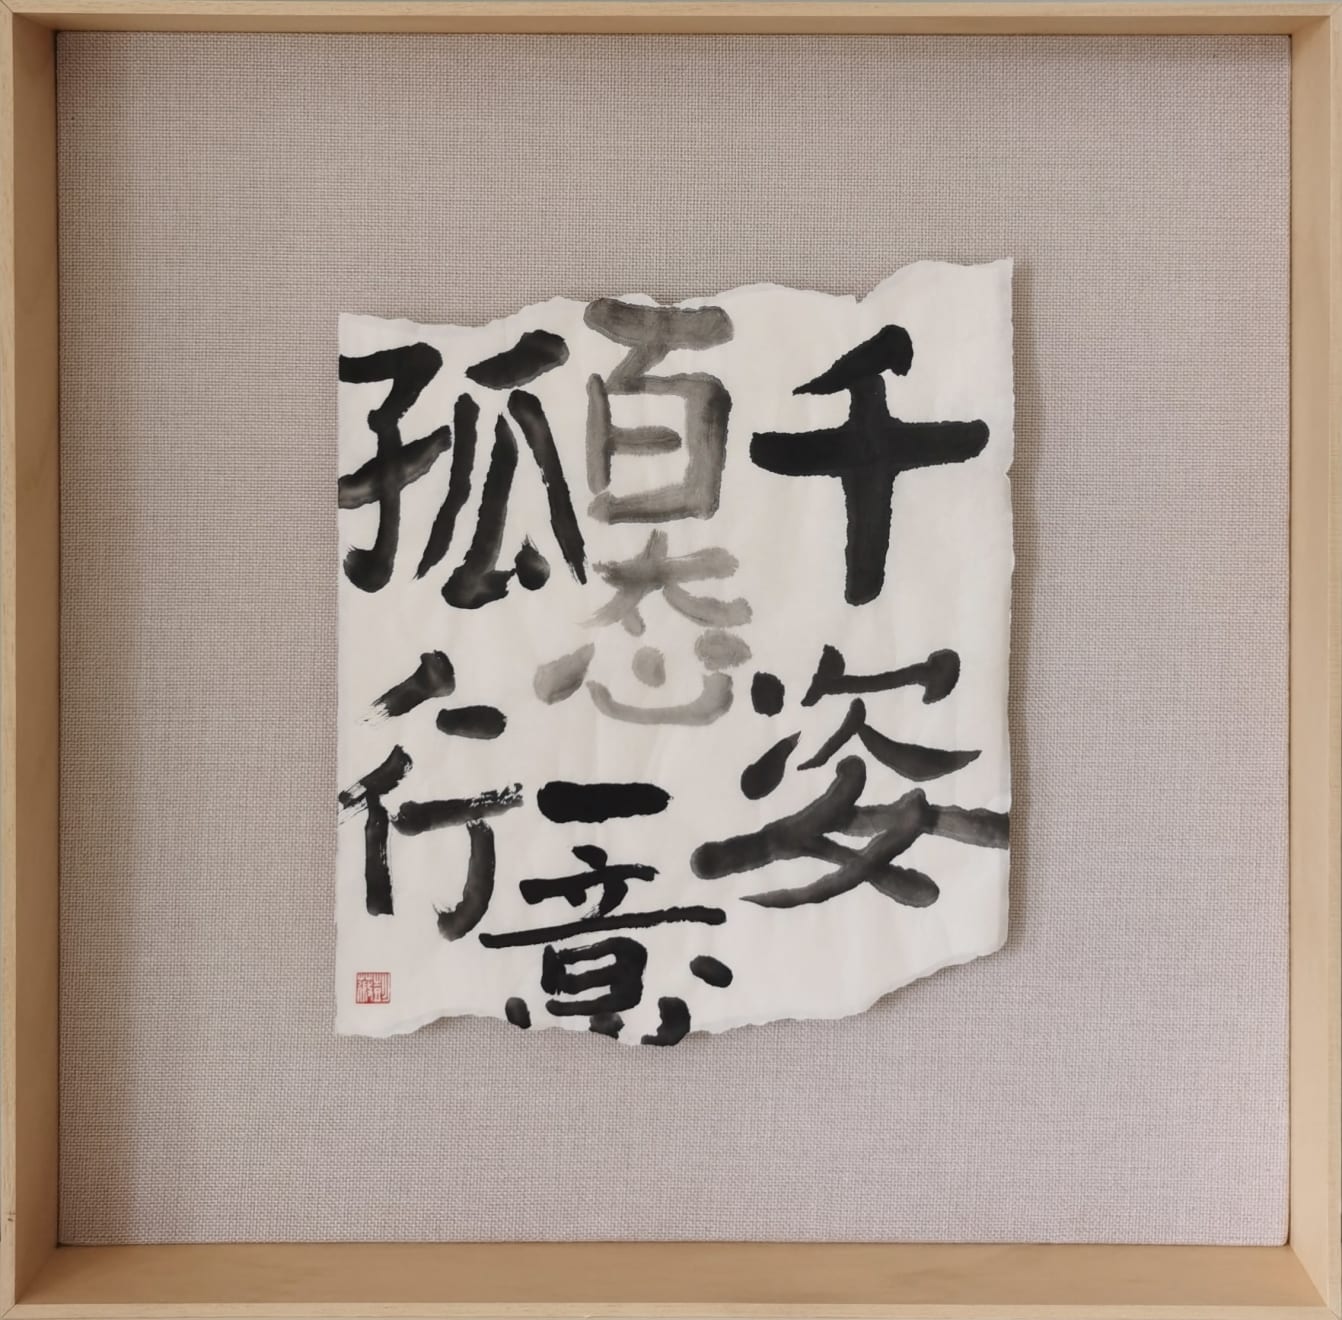 千姿
百态一意
孤行